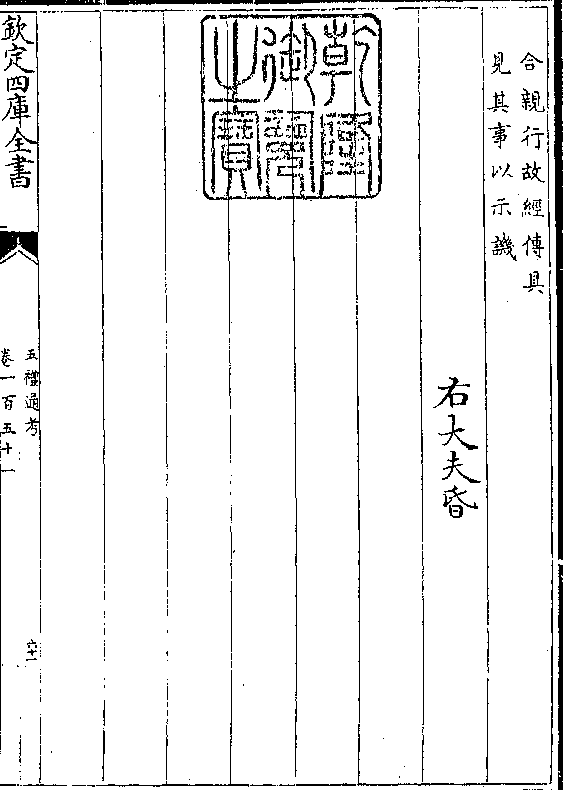 合親行故經傳具
見其事以示譏
右大夫昏
乾隆
御覽
之寶
欽定四庫全書
五禮通考
卷一百五十一
六十一